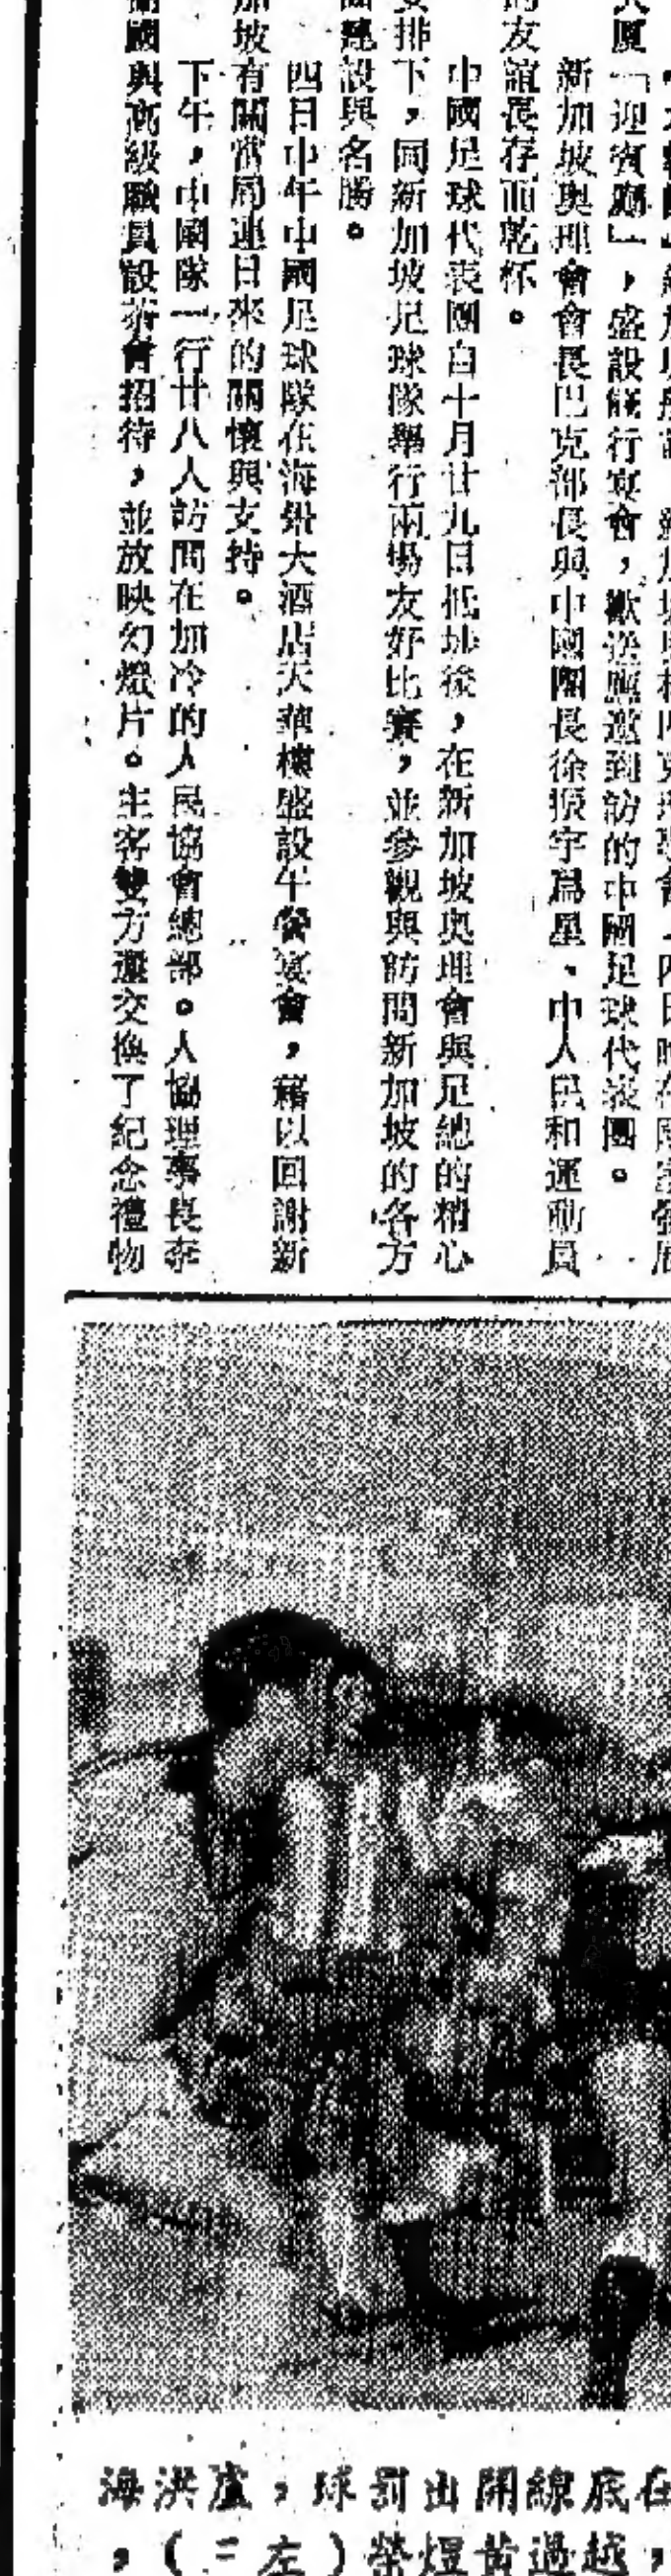 大厦「迎賓廳」，盛設餞行宴會，歡送應邀到訪的中國足球代表團。
新加坡奧理會會長巴克部長與中國團長徐振宇爲星、中人民和運動員
的友誼長存而乾杯。
中國足球代表團自十月廿九日抵埗後，在新加坡奧理會與足總的精心
安排下，同新加坡足球隊舉行兩場友好比賽，並參觀與訪問新加坡的各方
面建設與名勝。
四日中午中國足球隊在海景大酒店天華樓盛設午餐宴會，藉以回謝新
加坡有關當局連日來的關懷與支持。
下午，中國隊一行廿八人訪問在加冷的人民協會總部。人協理事長李
國與高級職員設茶會招待，並放映幻燈片。主客雙方還交換了紀念禮物
在底線開出罰球，盧洪海
，越過黃煜榮（左二），